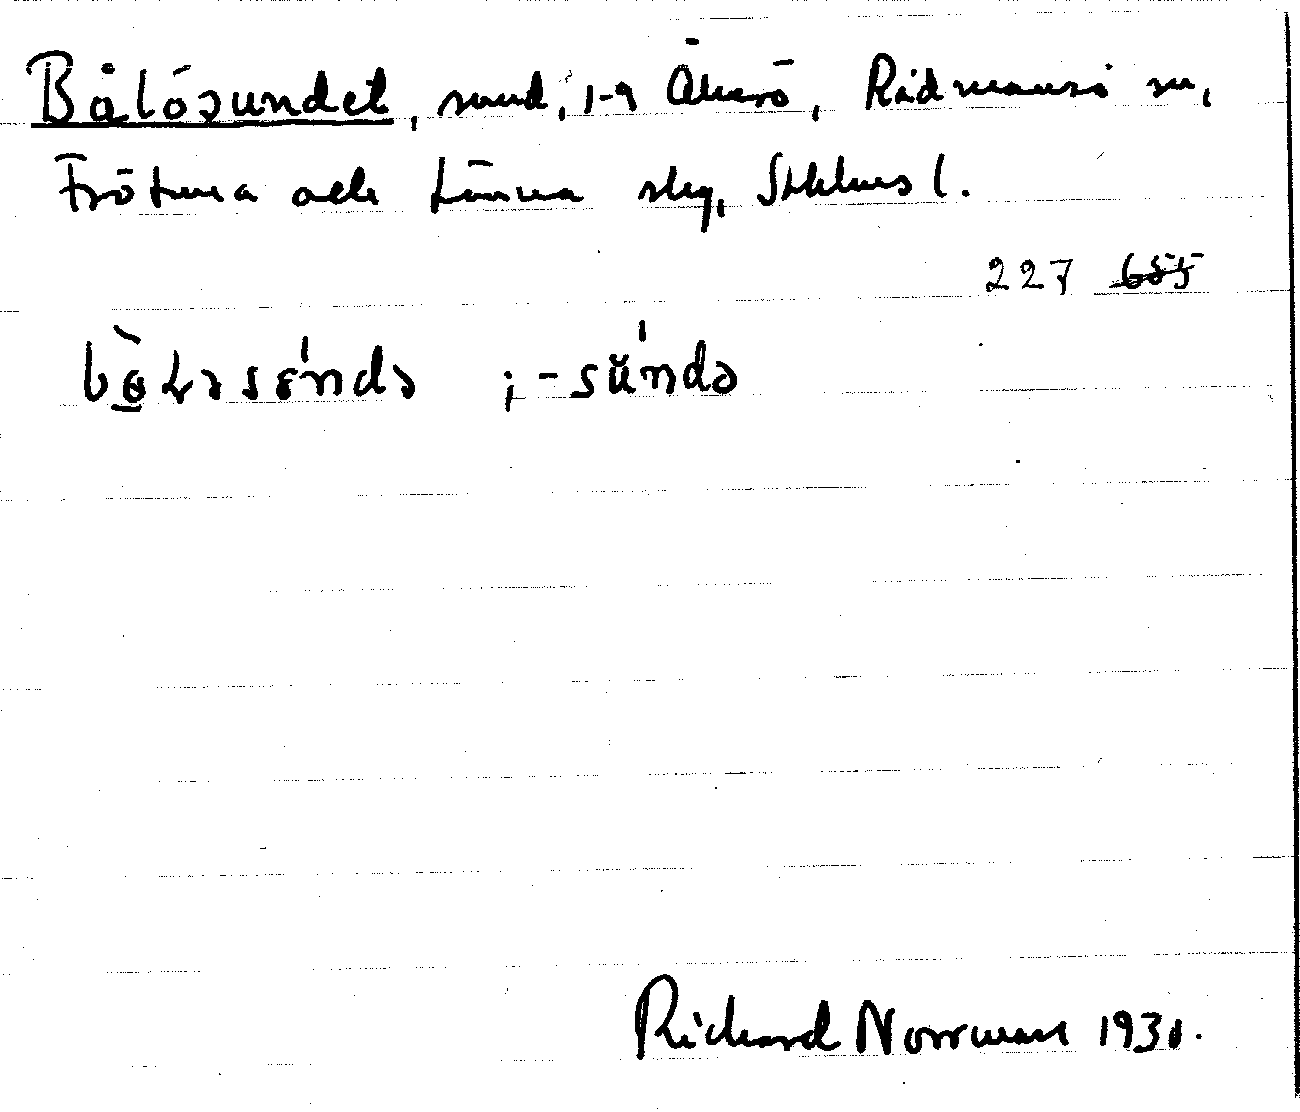 Bålösundet, sund, 1-9 Åkerö, Rådmansö sn,
Frötuna och Länna skg, Sthlms l.
227 655
; -sŭndə
Richard Norrman 1931.